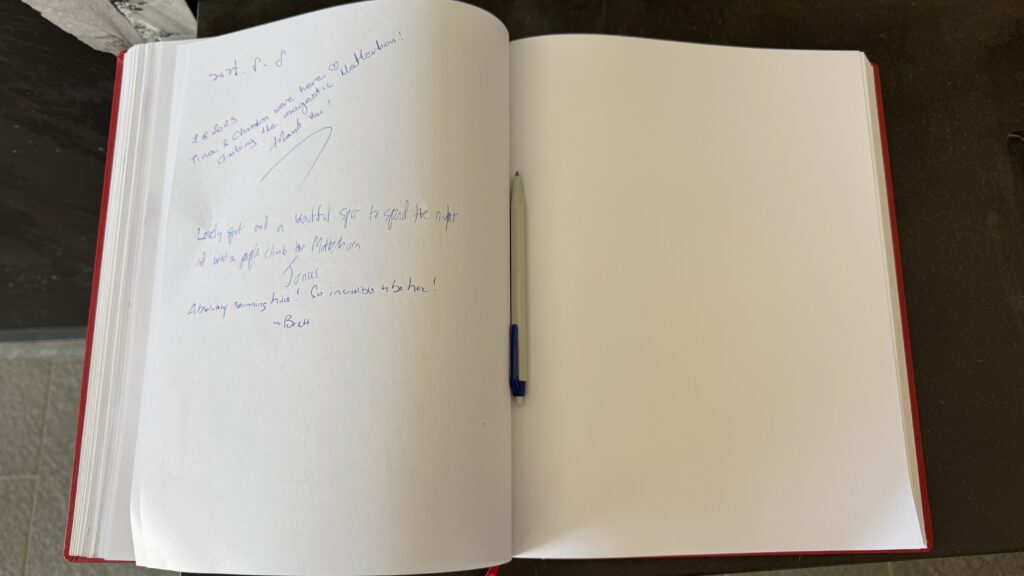 2025. 8. 8
1.8.2025
Tina & were here ♡
climbing the majestic Matterhorn!
Thank you!
Lovely spot and a beautiful spot to spend the night
and people climb the Matterhorn
Jonas
Absolutely stunning hike! So incredible to be here!
~Brett